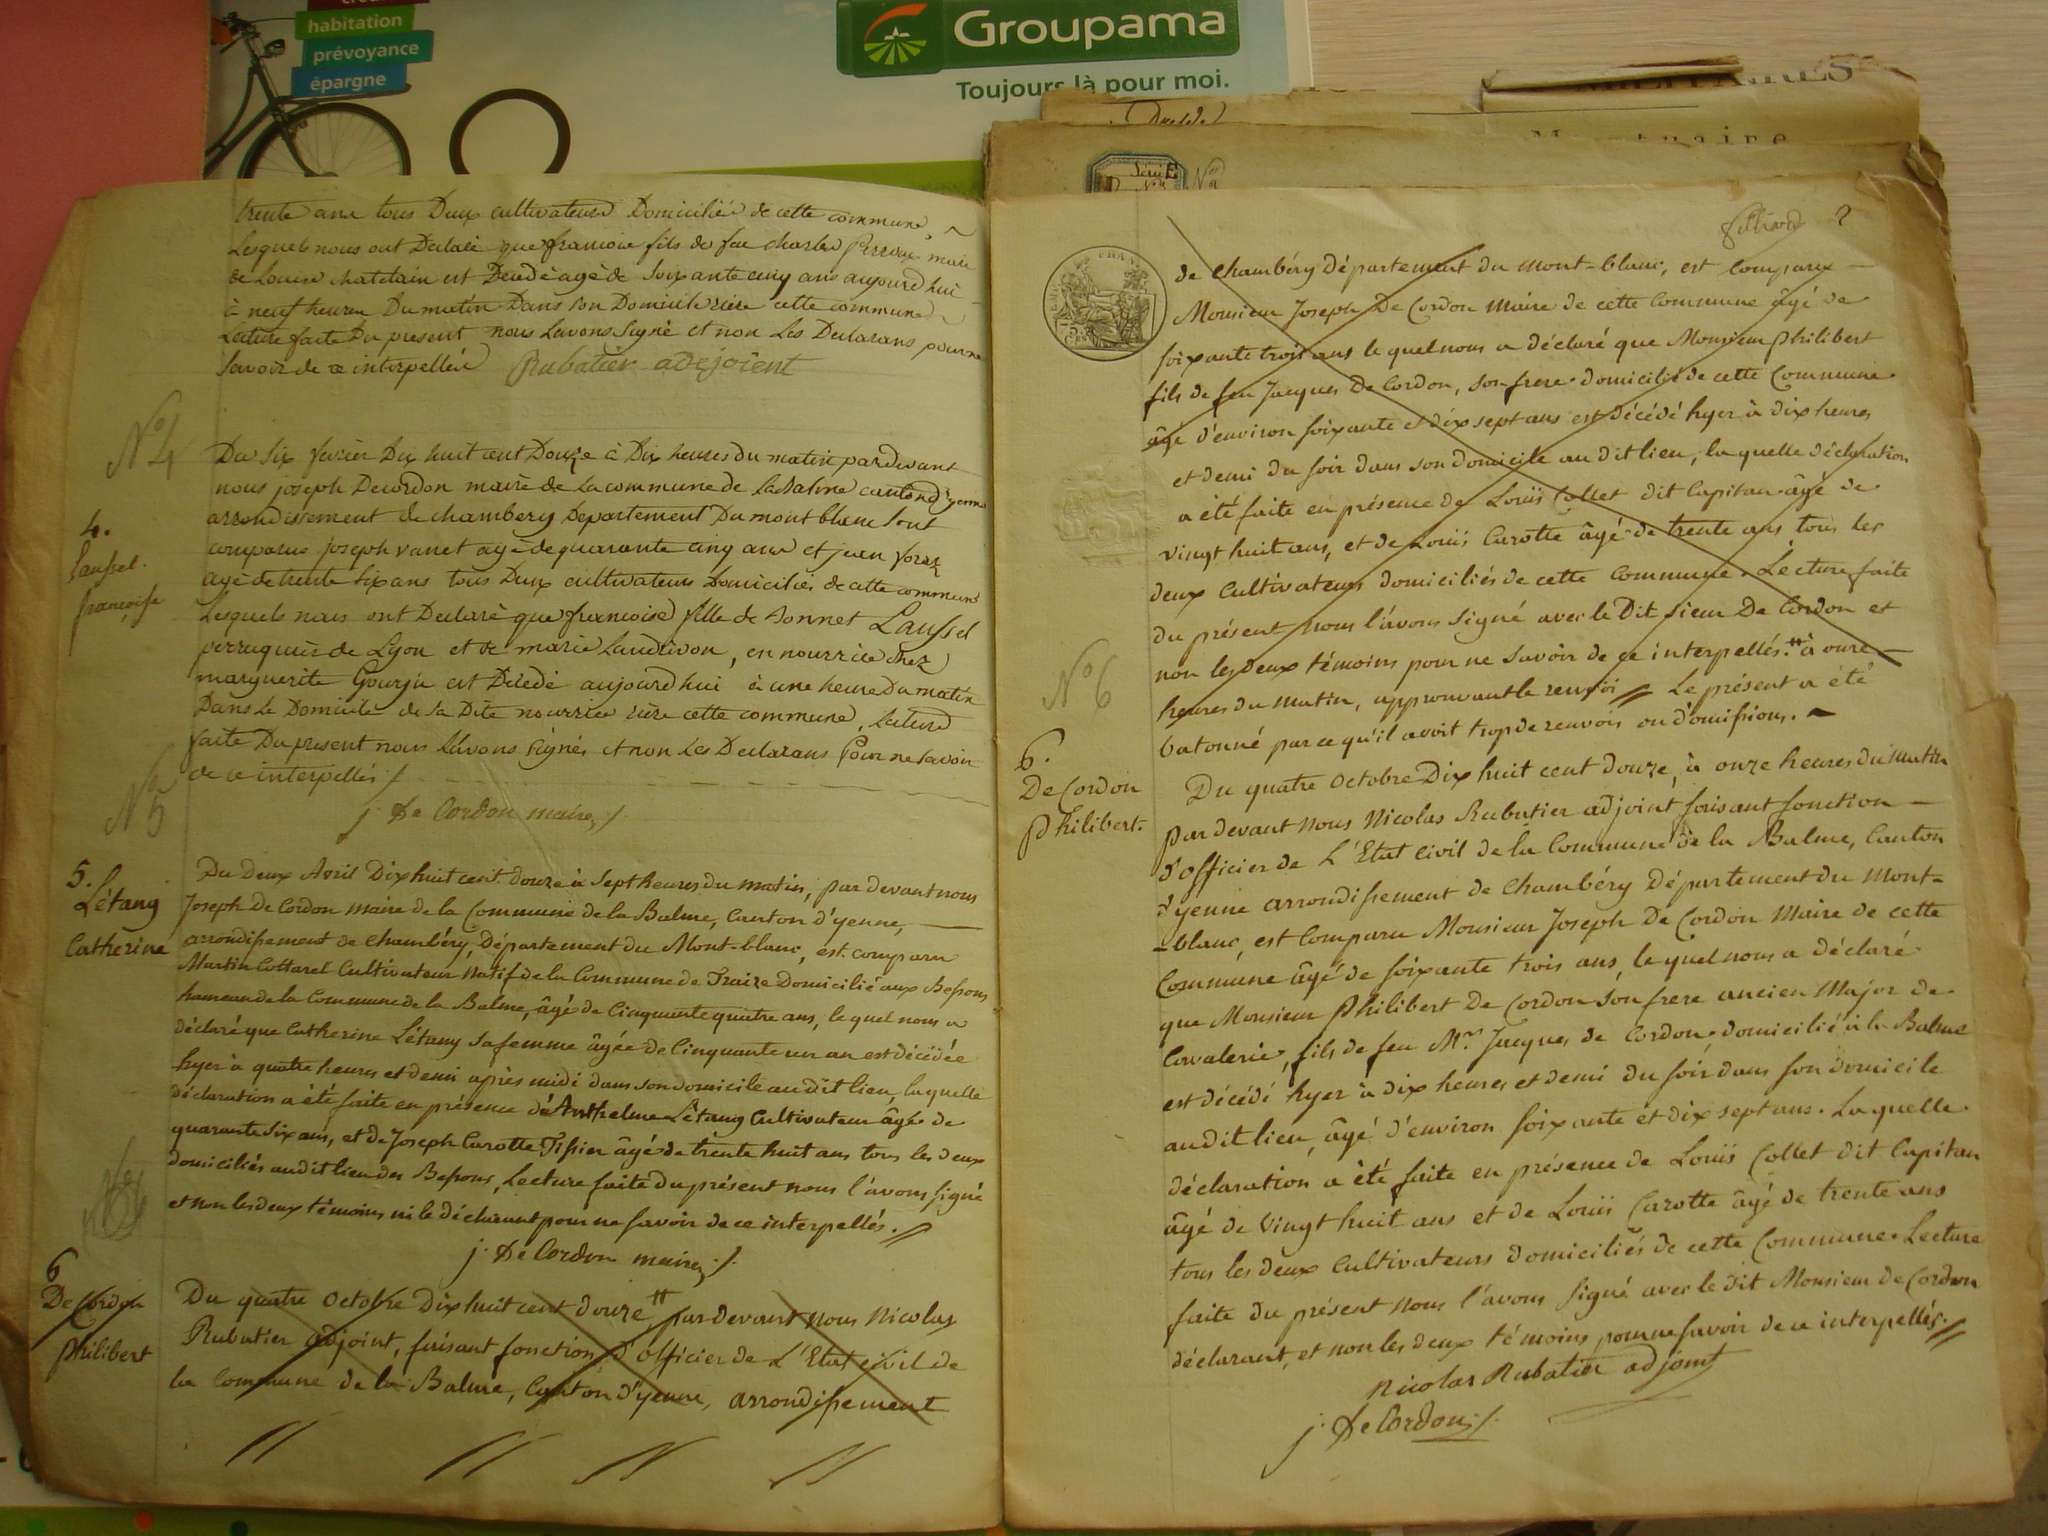 habitation
prévoyance
épargne
Groupama
Toujours là pour moi.
trente ans tous Deux cultivateurs Domiciliés de cette commune
Lesquels nous ont Declaré que francois fils de feu charles Perroux mari
de Louise chatelain est Décédé agé de soixante cinq ans aujourd'hui
à neuf heures Du matin Dans son Domicile rière cette commune
Lecture faite Du present nous Lavons signé et non Les Declarans pour ne
savoir de ce interpellés Rubatier adejoient
N° 4
4.
Laussel
françoise
Du six fevrier Dix huit cent Douze à Dix heures du matin pardevant
nous joseph Decordon maire de La commune de La Balme canton d'yenne
arrondissement de chambery Departement Du mont blanc sont
comparus joseph vanet agé de quarante cinq ans et jean foraz
agé de trente six ans tous Deux cultivateurs Domiciliés de cette commune
Lesquels nous ont Declaré que francoise fille de Bonnet Laussel
perruquier de Lyon et de marie Landivon, en nourrice chez
marguerite Gourju est Décédé aujourd'hui à une heure Du matin
Dans Le Domicile de sa Dite nourrice rière cette commune, Lecture
faite Du present nous Lavons signés et non Les Declarans Pour ne savoir
de ce interpellés
j. De Cordon maire
N° 5
5.
Létang
Catherine
Du Deux Avril Dix huit cent douze à Sept heures du matin, par devant nous
Joseph De Cordon maire de la Commune de la Balme, Canton d'yenne,
arrondissement de Chambéry, Département du Mont-blanc, est comparu
Martin Cottarel Cultivateur natif de la Commune de Traize Domicilié aux Bessons
hameau de la Commune de la Balme, âgé de Cinquante quatre ans, le quel nous a
déclaré que Catherine Létang sa femme âgée de Cinquante un an est décédée
hyer à quatre heures et demi après midi dans son domicile au dit lieu, laquelle
déclaration a été faite en présence de Anthelme Létang Cultivateur âgé de
quarante six ans, et de Joseph Carotte Tissier âgé de trente huit ans tous les deux
domiciliés au dit lieu des Bessons, Lecture faite du présent nous l'avons signé
et non les deux témoins ni le déclarant pour ne savoir de ce interpellés.
j. De Cordon maire
6
De Cordon
Philibert
Du quatre Octobre Dix huit cent douze, # par devant nous Nicolas
Rubatier adjoint, faisant fonction d'officier de L'Etat civil de
la Commune de la Balme, Canton d'yenne, arrondissement
2
de Chambéry Département du Mont-blanc, est Comparu
Monsieur Joseph De Cordon Maire de cette Commune âgé de
soixante trois ans le quel nous a déclaré que Monsieur Philibert
fils de feu Jacques De Cordon, son frere domicilié de cette Commune
âge d'environ soixante et dix sept ans est décédé hyer à dix heures
et demi du soir dans son domicile au dit lieu, la quelle déclaration
a été faite en présence de Louïs Collet dit Capitan âgé de
vingt huit ans, et de Louïs Carotte âgé de trente ans, tous les
deux Cultivateurs domiciliés de cette Commune. Lecture faite
du présent nous l'avons signé avec le Dit sieur De Cordon et
non les deux témoins pour ne savoir de ce interpellés. # à onze
heures du matin, approuvant le renvoi Le présent a été
batonné parce qu'il avoit trop de renvois ou d'omissions.
N° 6
6.
De Cordon
Philibert.
Du quatre Octobre Dix huit cent douze, à onze heures du matin
par devant nous Nicolas Rubatier adjoint faisant fonction
d'officier de L'Etat civil de la Commune de la Balme, Canton
d'yenne arrondissement de Chambéry Département du Mont-
-blanc, est Comparu Monsieur Joseph De Cordon Maire de cette
Commune âgé de soixante trois ans, le quel nous a déclaré
que Monsieur Philibert De Cordon son frere ancien Major de
Cavalerie, fils de feu Mr. Jacques de Cordon, domicilié à la Balme
est décédé hyer à dix heures et demi du soir dans son domicile
au dit lieu, âgé d'environ soixante et dix sept ans. La quelle
déclaration a été faite en présence de Louïs Collet dit Capitan
âgé de vingt huit ans et de Louïs Carotte âgé de trente ans
tous les deux Cultivateurs domiciliés de cette Commune. Lecture
faite du présent nous l'avons signé avec le dit Monsieur de Cordon
déclarant, et non les deux témoins pour ne savoir de ce interpellés.
Nicolas Rubatier adjoint
j. De Cordon